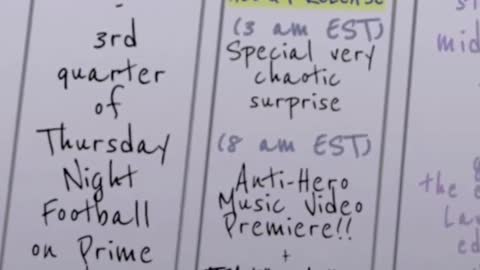 3rd
quarter
of
Thursday
Night
Football
on Prime
(3 am EST)
Special very
chaotic
surprise
(8 am EST)
Anti-Hero
Music Video
Premiere!!
+
mid
the e
ed